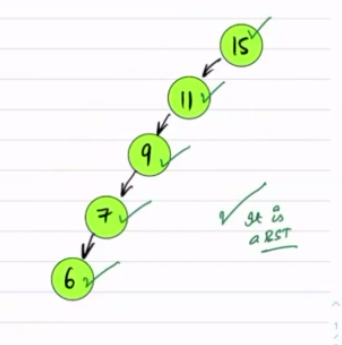 15
11
9
7
6
It is
a BST